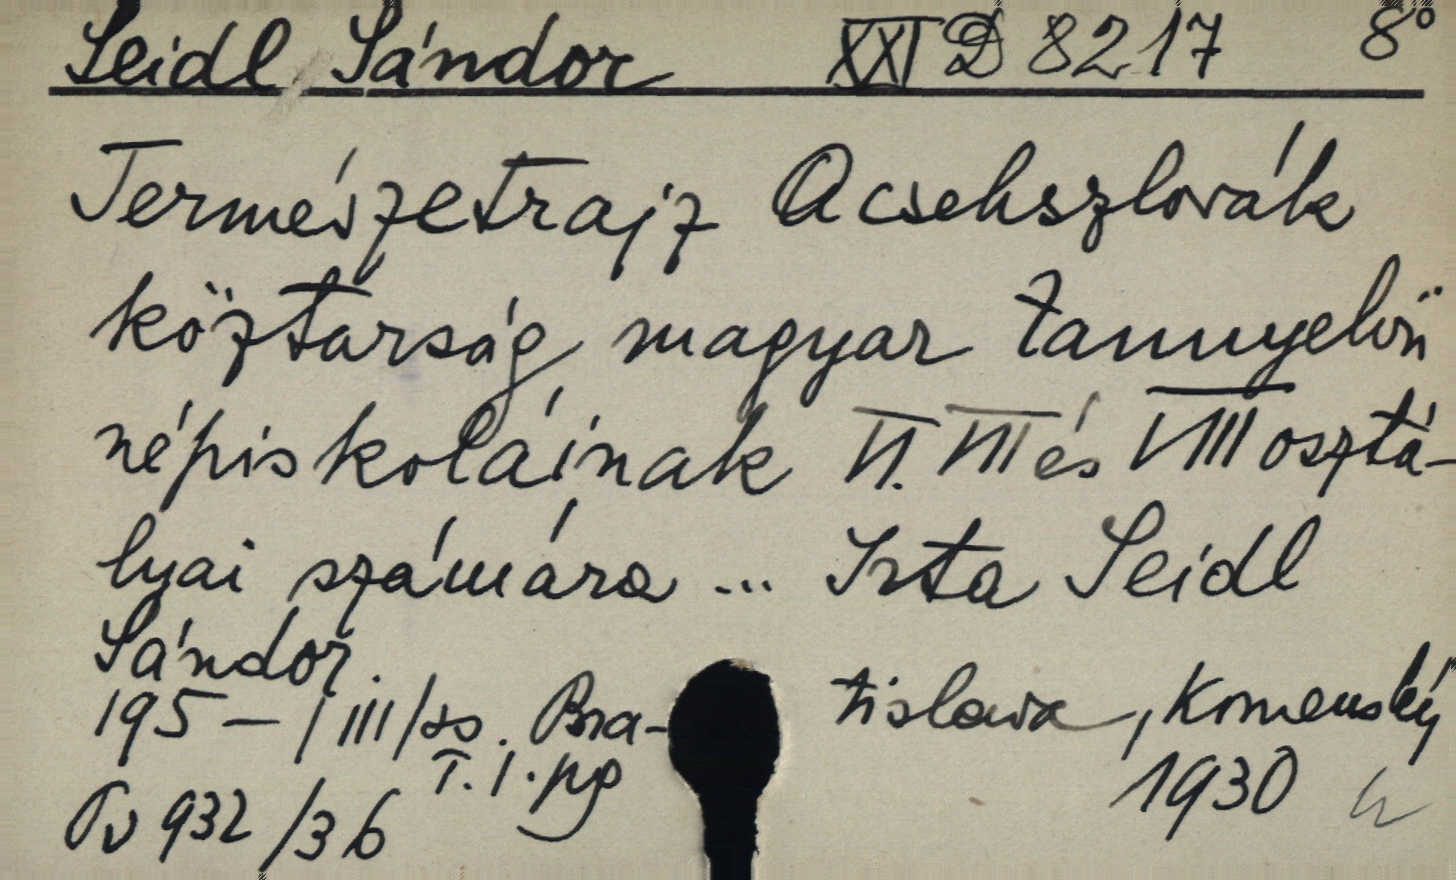 Seidl Sándor XXI D 8217 8°
Természetrajz A csehszlovák
köztarság magyar tannyelvű
népiskoláinak VI. VII és VIII osztá-
lyai számára ... Irta Seidl
Sándor.
195 - / III / ss. Bra- tislava, Komenský
T. 1. jpg 1930
Nv 932/36